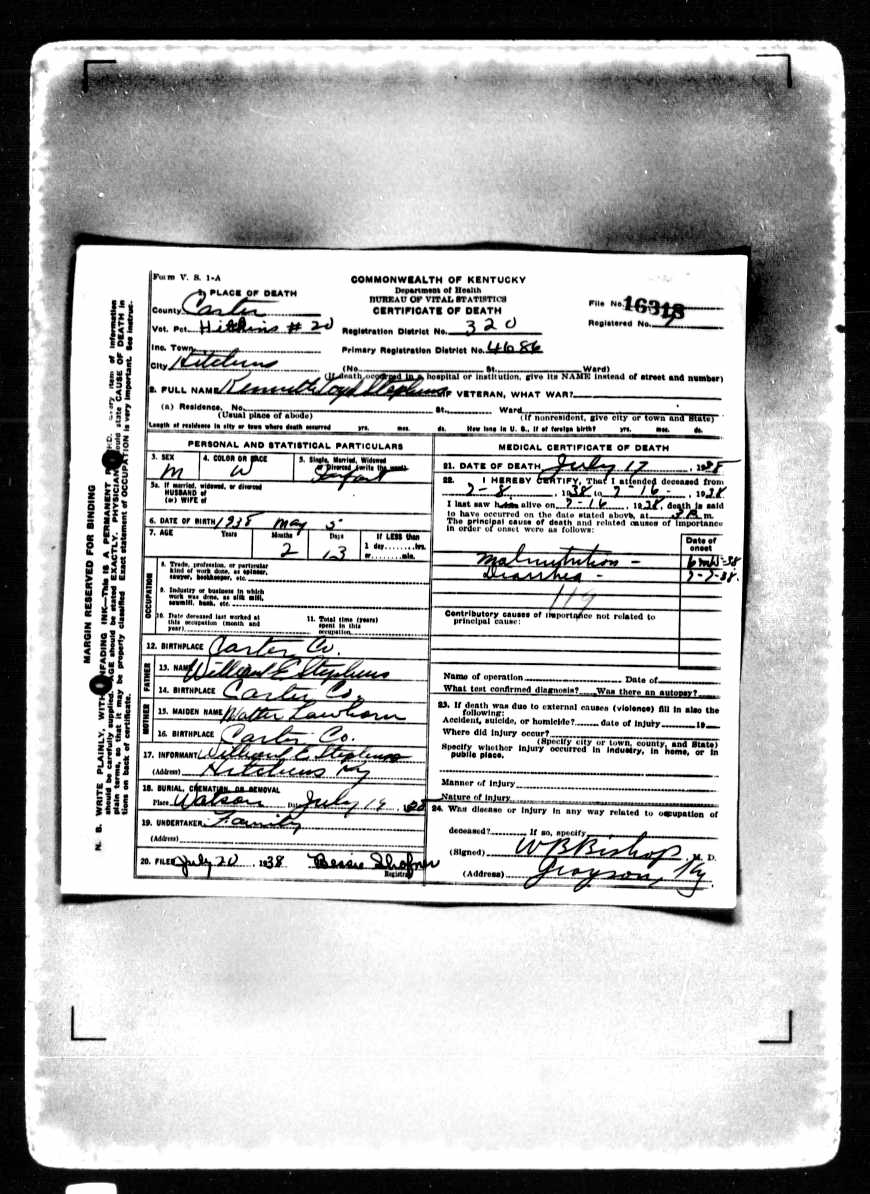 Form V. S. 1-A
COMMONWEALTH OF KENTUCKY
Department of Health
BUREAU OF VITAL STATISTICS
CERTIFICATE OF DEATH
File No. 16313
Registered No.
1. PLACE OF DEATH
County Carter
Vot. Pct. Hitchins # 20
Registration District No. 320
Inc. Town
Primary Registration District No. 4686
City Hitchins
(No. St. Ward)
(If death occurred in a hospital or institution, give its NAME instead of street and number)
2. FULL NAME Kenneth Loyd Stephens IF VETERAN, WHAT WAR?
(a) Residence. No. St. Ward
(Usual place of abode) (If nonresident, give city or town and State)
Length of residence in city or town where death occurred yrs. mos. ds. How long in U. S., if of foreign birth? yrs. mos. ds.
PERSONAL AND STATISTICAL PARTICULARS
3. SEX M
4. COLOR OR RACE W
5. Single, Married, Widowed
or Divorced (write the word)
Infant
5a. If married, widowed, or divorced
HUSBAND of
(or) WIFE of
6. DATE OF BIRTH 1938 May 5
7. AGE Years Months Days If LESS than
2 13 1 day hrs.
or min.
OCCUPATION
8. Trade, profession, or particular
kind of work done, as spinner,
sawyer, bookkeeper, etc.
9. Industry or business in which
work was done, as silk mill,
sawmill, bank, etc.
10. Date deceased last worked at
this occupation (month and
year)
11. Total time (years)
spent in this
occupation
12. BIRTHPLACE Carter Co.
FATHER
13. NAME William E Stephens
14. BIRTHPLACE Carter Co.
MOTHER
15. MAIDEN NAME Lawhorn
16. BIRTHPLACE Carter Co.
17. INFORMANT William E Stephens
(Address) Hitchins Ky
18. BURIAL, CREMATION, OR REMOVAL
Place Watson Date July 19, 1938
19. UNDERTAKER Family
(Address)
20. FILED July 20, 1938 Bessie Shafner
Registrar
MEDICAL CERTIFICATE OF DEATH
21. DATE OF DEATH July 17, 1938
22. I HEREBY CERTIFY, That I attended deceased from
7-8, 1938, to 7-16-, 1938
I last saw h alive on 7-16, 1938, death is said
to have occurred on the date stated above, at m.
The principal cause of death and related causes of importance
in order of onset were as follows:
Date of
onset
Malnutrition -
Diarrhea - 7-7-38.
119
Contributory causes of importance not related to
principal cause:
Name of operation Date of
What test confirmed diagnosis? Was there an autopsy?
23. If death was due to external causes (violence) fill in also the
following:
Accident, suicide, or homicide? date of injury 19
Where did injury occur?
(Specify city or town, county, and State)
Specify whether injury occurred in industry, in home, or in
public place.
Manner of injury
Nature of injury
24. Was disease or injury in any way related to occupation of
deceased? If so, specify
(Signed) W B Bishop, M. D.
(Address) Grayson, Ky.
MARGIN RESERVED FOR BINDING
N. B. WRITE PLAINLY, WITH UNFADING INK—This IS A PERMANENT RECORD. Every item of information
should be carefully supplied. AGE should be stated EXACTLY. PHYSICIANS should state CAUSE OF DEATH in
plain terms, so that it may be properly classified. Exact statement of OCCUPATION is very important. See instruc-
tions on back of certificate.